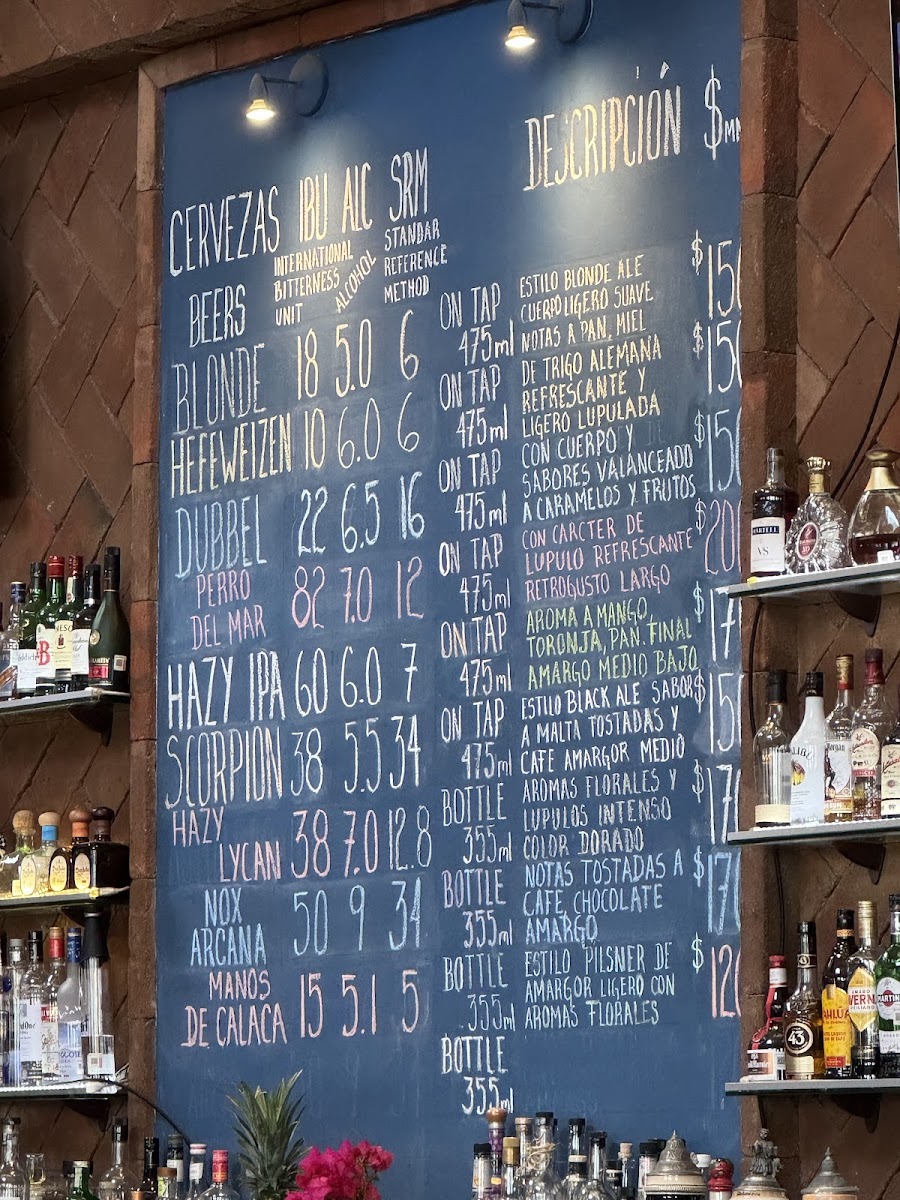 CERVEZAS IBU ALC SRM DESCRIPCIÓN $MN
BEERS INTERNATIONAL BITTERNESS UNIT ALCOHOL STANDAR REFERENCE METHOD
BLONDE 18 5.0 6
HEFEWEIZEN 10 6.0 6
DUBBEL 22 6.5 16
PERRO
DEL MAR 82 7.0 12
HAZY IPA 60 6.0 7
SCORPION 38 5.5 34
HAZY
LYCAN 38 7.0 12.8
NOX
ARCANA 50 9 34
MANOS
DE CALACA 15 5.1 5
ON TAP
475ml
ON TAP
475ml
ON TAP
475ml
ON TAP
475ml
ON TAP
475ml
ON TAP
475ml
BOTTLE
355ml
BOTTLE
355ml
BOTTLE
355ml
BOTTLE
355ml
ESTILO BLONDE ALE
CUERPO LIGERO SUAVE
NOTAS A PAN, MIEL
DE TRIGO ALEMANA
REFRESCANTE Y
LIGERO LUPULADA
CON CUERPO Y
SABORES VALANCEADO
A CARAMELOS Y FRUTOS
CON CARCTER DE
LUPULO REFRESCANTE
RETROGUSTO LARGO
AROMA A MANGO,
TORONJA, PAN. FINAL
AMARGO MEDIO BAJO
ESTILO BLACK ALE SABOR
A MALTA TOSTADAS Y
CAFE AMARGOR MEDIO
AROMAS FLORALES Y
LUPULOS INTENSO
COLOR DORADO
NOTAS TOSTADAS A
CAFE CHOCOLATE
AMARGO
ESTILO PILSNER DE
AMARGOR LIGERO CON
AROMAS FLORALES
$150
$150
$150
$200
$17
$150
$170
$170
$120
MARTELL
VS
43
KAHLÚA